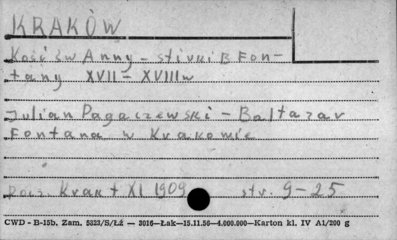 KRAKÒW
Kość św Anny - stiuki B Fon-
tany XVII - XVIII w
Julian Pagaczewski - Baltazar
Fontana w Krakowie
Rocz. Krak t XI 1909 str. 9-25
CWD - B-15b. Zam. 5823/S/Łź — 3016—Łak—15.11.56—4.000.000—Karton kl. IV A1/200 g